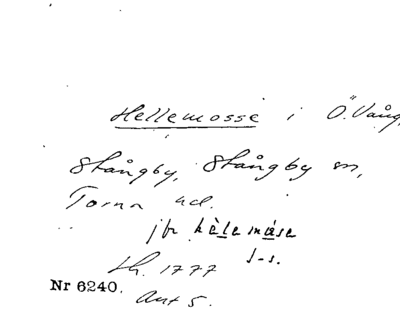 Hellemosse i Ö. Vång,
Stångby, Stångby sn,
Torna hd.
jfr hèlemåse
s-s.
Lh. 1777
Nr 6240.
Ant 5.